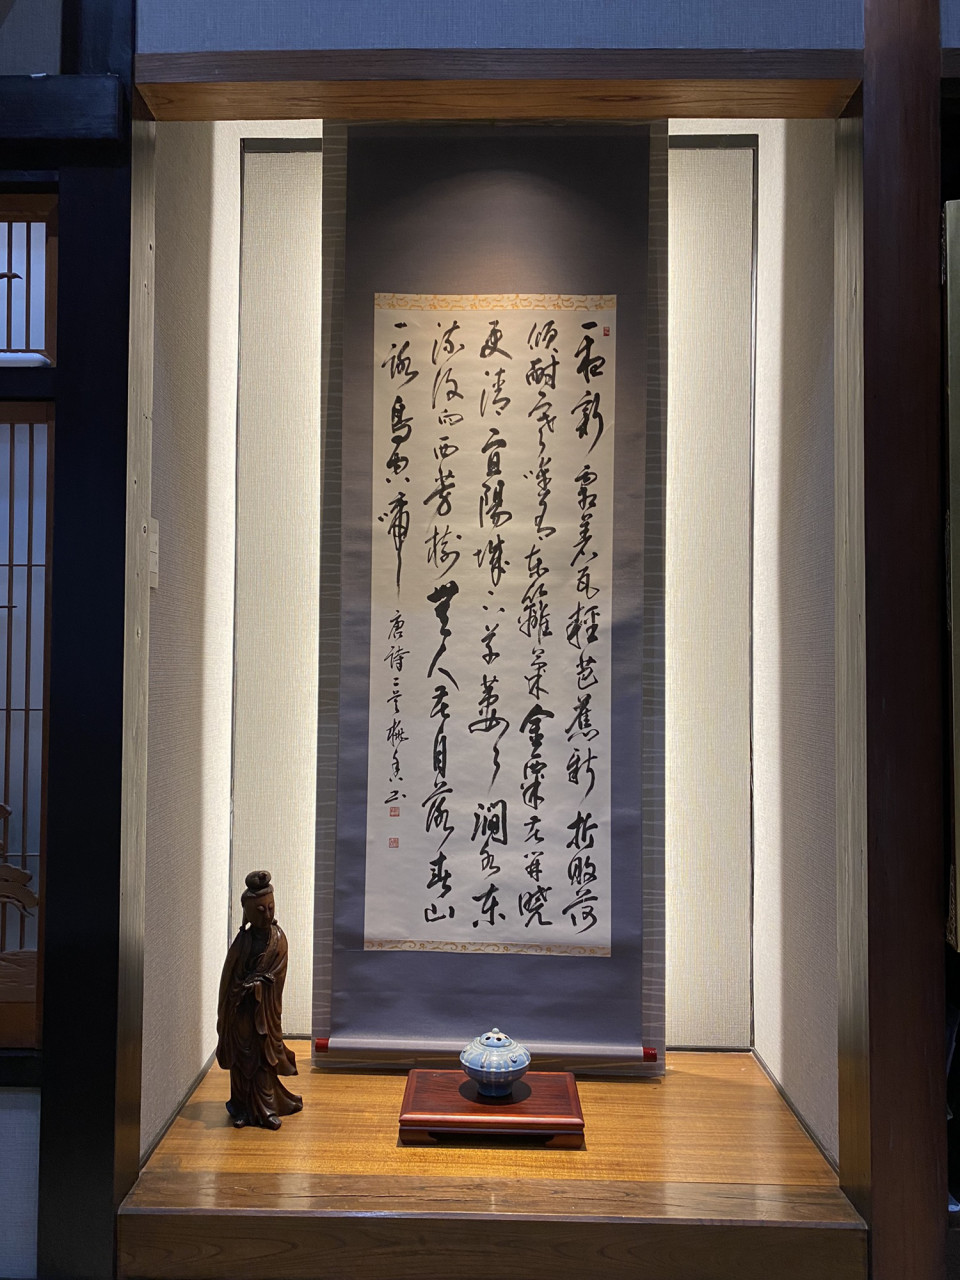 一夜新霜著瓦輕芭蕉新折敗荷
傾耐寒唯有東籬菊金粟花開曉
更清宜陽城下草萋々澗水東
流復向西芳樹無人花自落春山
一路鳥空啼
唐詩二首